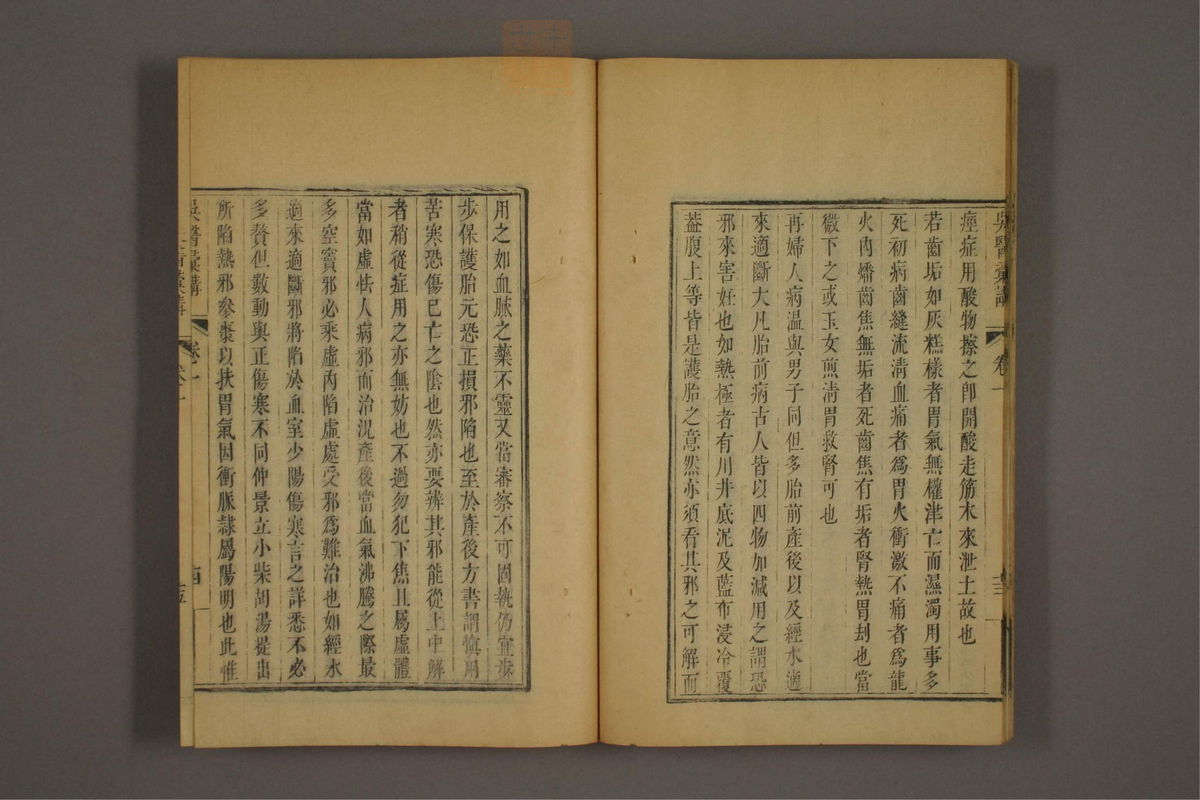 吳醫彙講
卷一
痙症用酸物擦之卽開酸走筋木來泄土故也
若齒垢如灰糕樣者胃氣無權津亡而濕濁用事多
死初病齒縫流淸血痛者爲胃火衝激不痛者爲龍
火內燔齒焦無垢者死齒焦有垢者腎熱胃刦也當
微下之或玉女煎淸胃救腎可也
再婦人病温與男子同但多胎前產後以及經水適
來適斷大凡胎前病古人皆以四物加減用之謂恐
邪來害妊也如熱極者有用井底泥及藍布浸冷覆
葢腹上等皆是護胎之意然亦須看其邪之可解而
用之如血膩之藥不靈又當審察不可固執仍宜步
步保護胎元恐正損邪陷也至於產後方書謂愼用
苦寒恐傷已亡之陰也然亦要辨其邪能從上中解
者稍從症用之亦無妨也不過勿犯下焦且屬虛體
當如虛怯人病邪而治况產後當血氣沸騰之際最
多空竇邪必乘虛內陷虛處受邪爲難治也如經水
適來適斷邪將陷於血室少陽傷寒言之詳悉不必
多贅但數動與正傷寒不同仲景立小柴胡湯提出
所陷熱邪參棗以扶胃氣因衝脈隸屬陽明也此惟
吳醫彙講
卷一